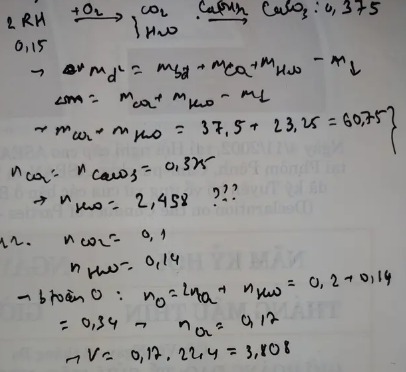 2 RH +O₂ → { CO₂ H₂O Ca(OH)₂ → CaCO₃ : 0,375
0,15
→ m_d² = m_bđ + m_CO₂ + m_H₂O - m↓
m = m_CO₂ + m_H₂O - m↓
→ m_CO₂ + m_H₂O = 37,5 + 23,25 = 60,75 }
n_CO₂ = n_CaCO₃ = 0,375
→ n_H₂O = 2,458 ???
n_CO₂ = 0,1
n_H₂O = 0,14
→ btoàn O : n_O = 2n_CO₂ + n_H₂O = 0,2 + 0,14
= 0,34 → n_O₂ = 0,17
→ V = 0,17 . 22,4 = 3,808